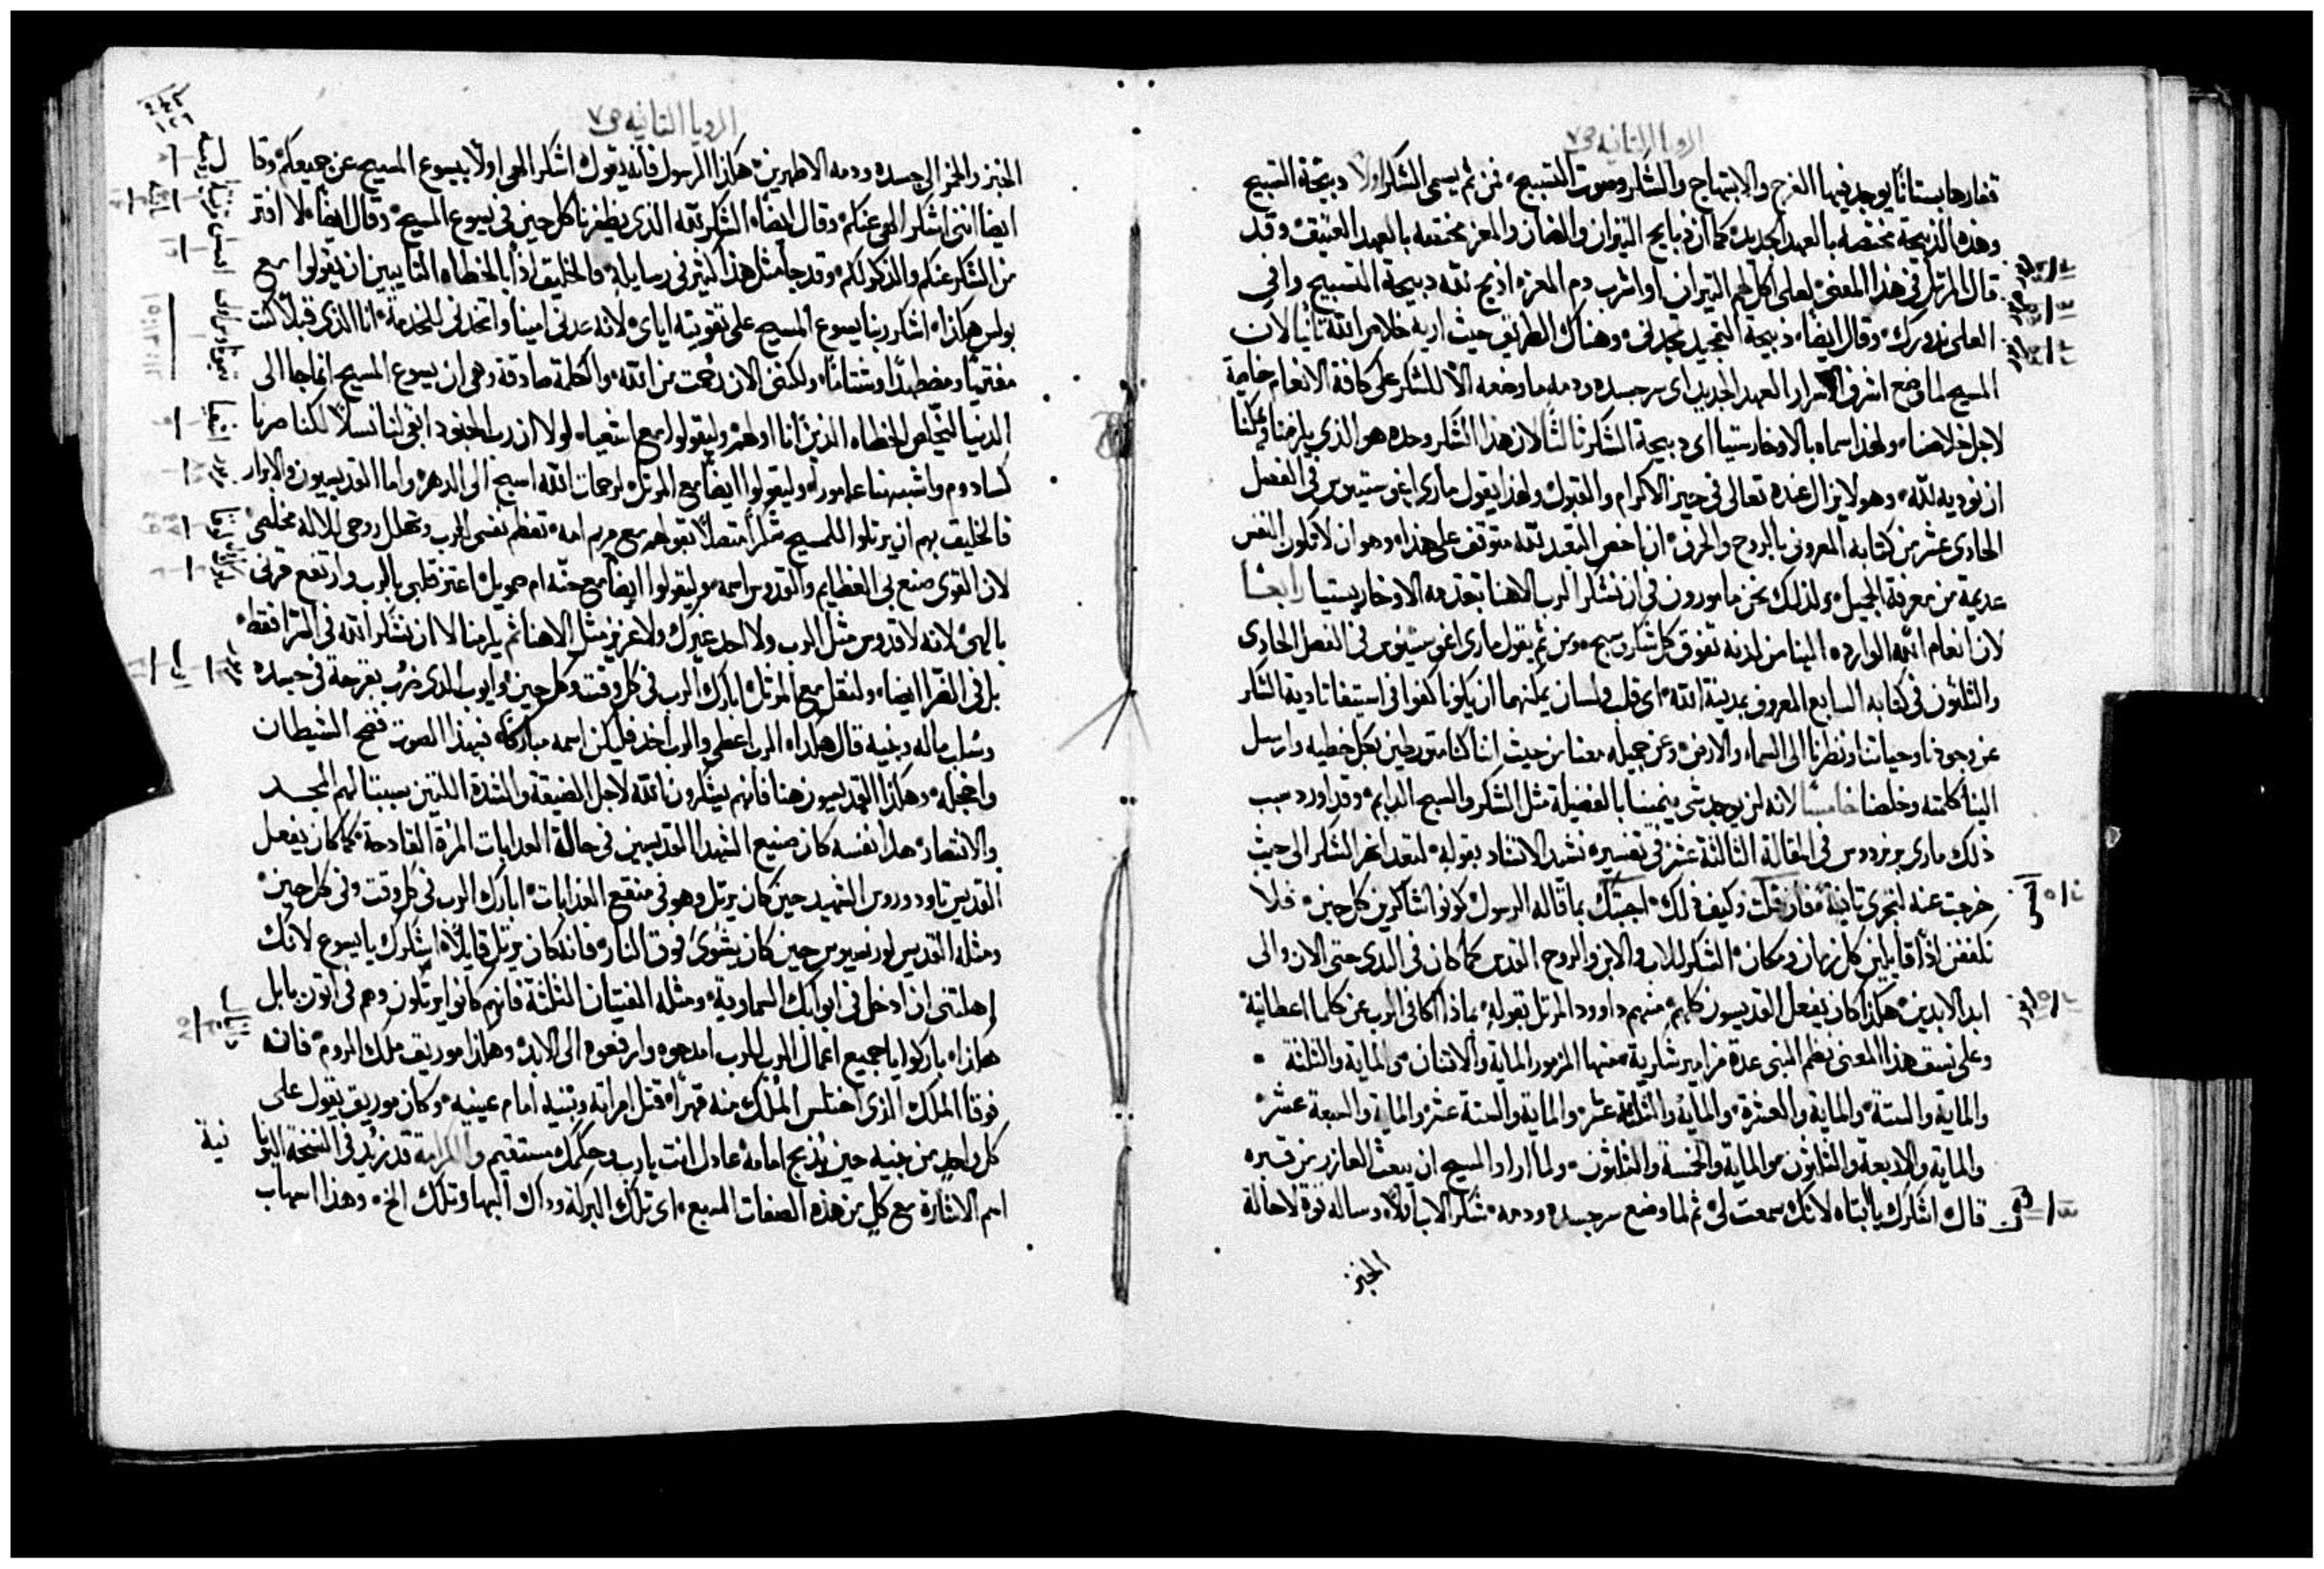 الرويا الثانيه ص٧
قفارها بستانًا يوجد فيها الفرح والابتهاج والشكر وصوت التسبيح، فمن ثم يسمى الشكر اولًا ذبيحة التسبيح
وهذه الذبيحة مختصه بالعهد الجديد، كما ان ذبايح الثيران والضان والمعز مختصه بالعهد العتيق، وقد
قال المرتل في هذا المعنى، لعلي اكل لحم الثيران او اشرب دم المعز، اذبح لله ذبيحة التسبيح واوفي
العلي نذورك، وقال ايضًا، ذبيحة التمجيد تمجدني، وهناك الطريق حيث اريه خلاص الله ثانيا لان
المسيح لما وضع اشرف الاسرار العهد الجديد اي سر جسده ودمه ما وضعه الا للشكر على كافة الانعام خاصةً
لاجل خلاصنا، ولهذا سماه بالاوخارستيا اي ذبيحة الشكر ثالثًا لان هذا الشكر وحده هو الذي يلزمنا ويمكننا
ان نوديه لله، وهو لا يزال عنده تعالى في حيز الاكرام والقبول ولهذا يقول ماري اغوستينوس في الفصل
الحادي عشر من كتابه المعروف بالروح والحرف، ان اخص التعبد لله متوقف على هذا، وهو ان لا تكون النفس
عديمة من معرفة الجميل، ولذلك نحن مامورون في ان نشكر الرب الاهنا بتقدمه الاوخاريستيا رابعًا
لان انعام الله الوارده الينا من لدنه تفوق كل شكر وسبح، ومن ثم يقول ماري اغوستينوس في الفصل الحادي
والثلثون في كتابه السابع المعروف بمدينة الله، اي قلب ولسان يمكنهما ان يكونا كفوا في استيفا تادية الشكر
عن وجودنا وحياتنا ونظرنا الى السماء والارض، وعن جميله معنا من حيث اننا كنا متورطين بكل خطيه وارسل
الينا كلمته وخلصنا خامسًا لانه لن يوجد شي ينمينا بالفضيلة مثل الشكر والسبح الدايم، وقد اورد سبب
ذلك ماري برنردوس في المقالة الثالثة عشر في تفسيره نشيد الانشاد بقوله، لتعد انهر الشكر الى حيث
خرجت عنه لتجري ثانيةً، فان قلت وكيف ذلك، اجبتك بما قاله الرسول كونوا شاكرين كل حين، فلا
نكففن اذًا قايلين كل زمان ومكان، الشكر للاب والابن والروح القدس كما كان في البدي حتى الان والى
ابد الابدين، هكذا كان يفعل القديسون كلهم، منهم داوود المرتل بقوله، بماذا اكافي الرب عن كلما اعطانيه
وعلى نسق هذا المعنى نظم النبي عدة مزامير شكرية، منها المزمور الماية والاثنان والماية والثلثة
والماية والستة، والماية والعشرة، والماية والثلثة عشر، والماية والستة عشر، والماية والسبعة عشر
والماية والاربعة والثلثون، والماية والخمسة والثلثون، ولما اراد المسيح ان يبعث العازر من قبره
قال اشكرك يا ابتاه لانك سمعت لي، ثم لما وضع سر جسده ودمه، شكر الاب اولًا، وساله قوة لاحالة
الخبز
الرويا الثانيه ص٧
الخبز والخمر الى جسده ودمه الاطهرين، هكذا الرسول فانه يقول، اشكر الهي اولًا بيسوع المسيح عن جميعكم، وقا
ل ايضا انني اشكر الهي عنكم، وقال ايضًا، الشكر لله الذي يظفرنا كل حين في يسوع المسيح، وقال ايضًا، لا افتر
من الشكر عنكم والذكر لكم، وقد جا مثل هذا كثير في رسايله، فالخليق اذًا بالخطاه التايبين ان يقولوا مع
بولس هكذا، اشكر ربنا يسوع المسيح على تقويته اياي، لانه عدني امينًا واتخذني للخدمة، انا الذي قبلًا كنت
مفتريًا ومضطهدًا وشتامًا، ولكنني الان رحمت من الله، والكلمة صادقة وهي ان يسوع المسيح انما جا الى
الدنيا ليخلص الخطاه الذين انا اولهم، وليقولوا مع اشعيا، لولا ان رب الجنود ابقى لنا نسلًا لكنا صرنا
كسادوم واشبهنا عامورا، وليقولوا ايضًا مع المرتل، لرحمات الله اسبح الى الدهر، واما القديسون والابرار
فالخليق بهم ان يرتلوا للمسيح شكرًا متصلًا بقولهم مع مريم امه، تعظم نفسي الرب وتهلل روحي بالاله مخلصي
لان القوي صنع بي العظايم والقدوس اسمه، وليقولوا ايضًا مع حنه ام صمويل، اعتز قلبي بالرب وارتفع قرني
بالهي، لانه لا قدوس مثل الرب ولا احد غيرك ولا عزيز مثل الاهنا، ثم يلزمنا لا ان نشكر الله في السرا فقط
بل في الضرا ايضا، ولنقل مع المرتل، ابارك الرب في كل وقت وكل حين، وايوب الذي ضرب بقرحة في جسده
وسلب ماله وبنيه قال هكذا، الرب اعطى والرب اخذ فليكن اسمه مباركًا، فبهذا الصوت فضح الشيطان
واخجله، وهكذا القديسون هنا فانهم يشكرون الله لاجل الضيقة والشدة اللتين سببتا لهم المجد
والانتصار، هذا نفسه كان صنيع الشهدا القديسين في حالة العذابات المرة القادحة، كما كان يفعل
القديس تاودوروس الشهيد حين كان يرتل وهو في منقع العذابات، ابارك الرب في كل وقت وفي كل حين
ومثله القديس لورنسيوس حين كان يشوى فوق النار، فانه كان يرتل قايلًا، اشكرك يا يسوع لانك
اهلتني ان ادخل في ابوابك السماوية، ومثله الفتيان الثلثة فانهم كانوا يرتلون وهم في اتون بابل
هكذا، باركوا يا جميع اعمال الرب للرب امدحوه وارفعوه الى الابد، وهكذا موريق ملك الروم، فان
فوقا الملك الذي اختلس الملك منه قهرًا، قتل امراته وبنيه امام عينيه، وكان موريق يقول على
كل واحد من بنيه حين يذبح امامه، عادل انت يا رب وحكمك مستقيم، والكرامة، قد زيد في النسخة اليونا
نية اسم الاشارة مع كل من هذه الصفات السبع، اي تلك البركة وذاك البها وتلك الخ، وهذا اسهاب